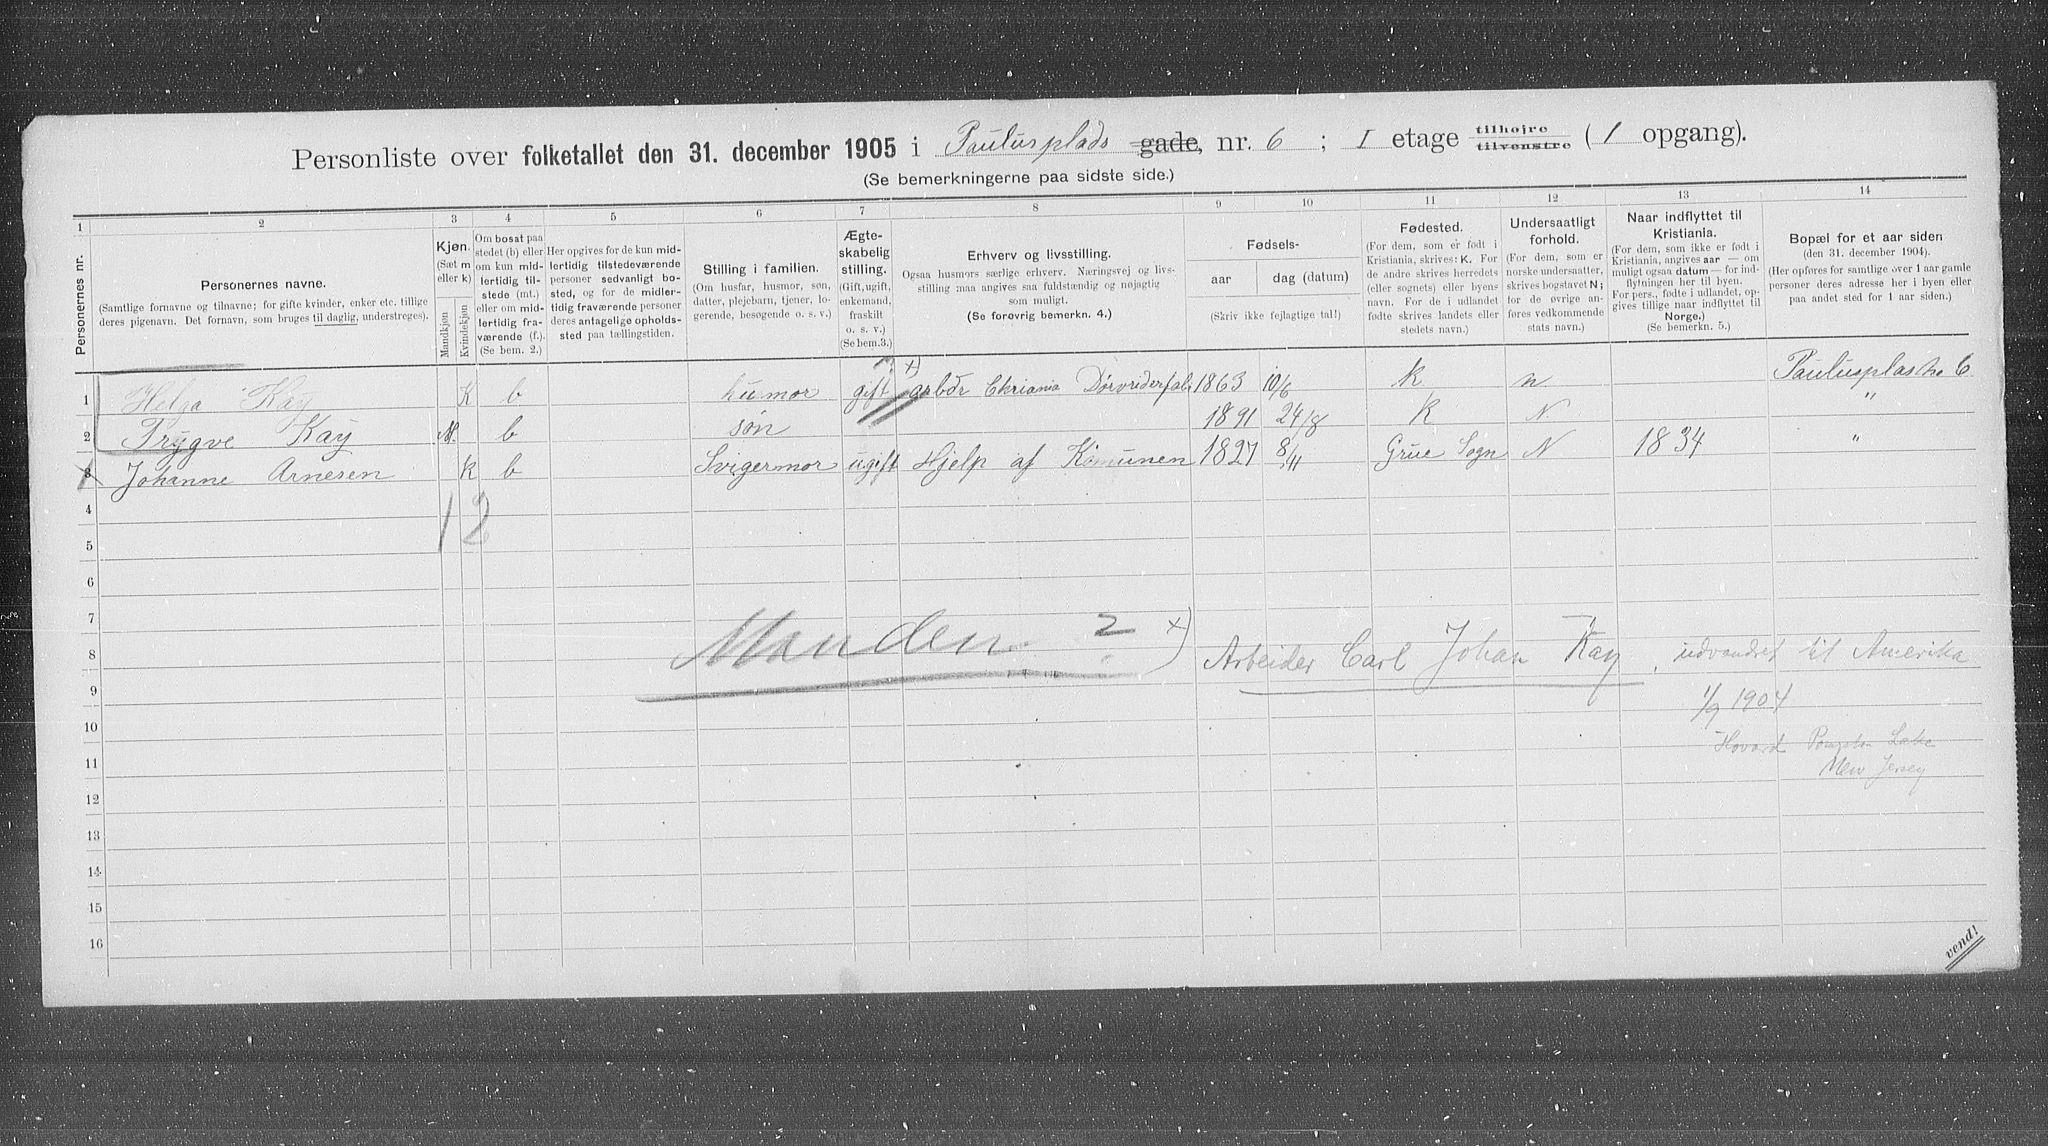 Personliste over folketallet den 31. december 1905 i Paulusplads gade, nr. 6 ; I etage tilhøjre tilvenstre ( 1 opgang).
(Se bemerkningerne paa sidste side.)
1 2 3 4 5 6 7 8 9 10 11 12 13 14
Personernes nr.
Personernes navne.
(Samtlige fornavne og tilnavne; for gifte kvinder, enker etc. tillige
deres pigenavn. Det fornavn, som bruges til daglig, understreges).
Kjøn.
(Sæt m
eller k)
Mandkjøn
Kvindekjøn
Om bosat paa
stedet (b) eller
om kun mid-
lertidig til-
stede (mt.)
eller om mid-
lertidig fra-
værende (f.).
(Se bem. 2.)
Her opgives for de kun mid-
lertidig tilstedeværende
personer sedvanlig bo-
sted, og for de midler-
tidig fraværende personer
deres antagelige opholds-
sted paa tællingstiden.
Stilling i familien.
(Om husfar, husmor, søn,
datter, plejebarn, tjener, lo-
gerende, besøgende o. s. v.)
Ægte-
skabelig
stilling.
(Gift, ugift,
enkemand,
fraskilt
o. s. v.)
(Se bem.3.)
Erhverv og livsstilling.
Ogsaa husmors særlige erhverv. Næringsvej og livs-
stilling maa angives saa fuldstændig og nøjagtig
som muligt.
(Se forøvrig bemerkn. 4.)
Fødsels-
aar dag (datum)
(Skriv ikke fejlagtige tal!)
Fødested.
(For dem, som er født i
Kristiania, skrives: K. For
de andre skrives herredets
(eller sognets) eller byens
navn. For de i udlandet
fødte skrives landets eller
stedets navn.)
Undersaatligt
forhold.
(For dem, som er
norske undersaatter,
skrives bogstavet N;
for de øvrige an-
føres vedkommende
stats navn.)
Naar indflyttet til
Kristiania.
(For dem, som ikke er født i
Kristiania, angives aar — om
muligt ogsaa datum — for ind-
flytningen her til byen.
For pers., fødte i udlandet, op-
gives tillige naar indflyttet til
Norge.)
(Se bemerkn. 5.)
Bopæl for et aar siden
(den 31. december 1904).
(Her opføres for samtlige over 1 aar gamle
personer deres adresse her i byen eller
paa andet sted for 1 aar siden.)
1 Helga Kay K b husmor gift ? x) arbdr Chriania 1863 10/6 K n 6
2 Trygve Kay M. b søn 1891 24/8 K N "
3 Johanne Arnesen K b Svigermor ugift Hjelp af Komunen 1827 8/11 Grue Sogn N 1834 "
4 1 2
5
6
7
8 Manden ? x) Arbeider Carl Johan Kay, udvandret til Amerika
9 1/9 1904
10
11 Hovard Lake
New Jersey
12
13
14
15
16
vend!